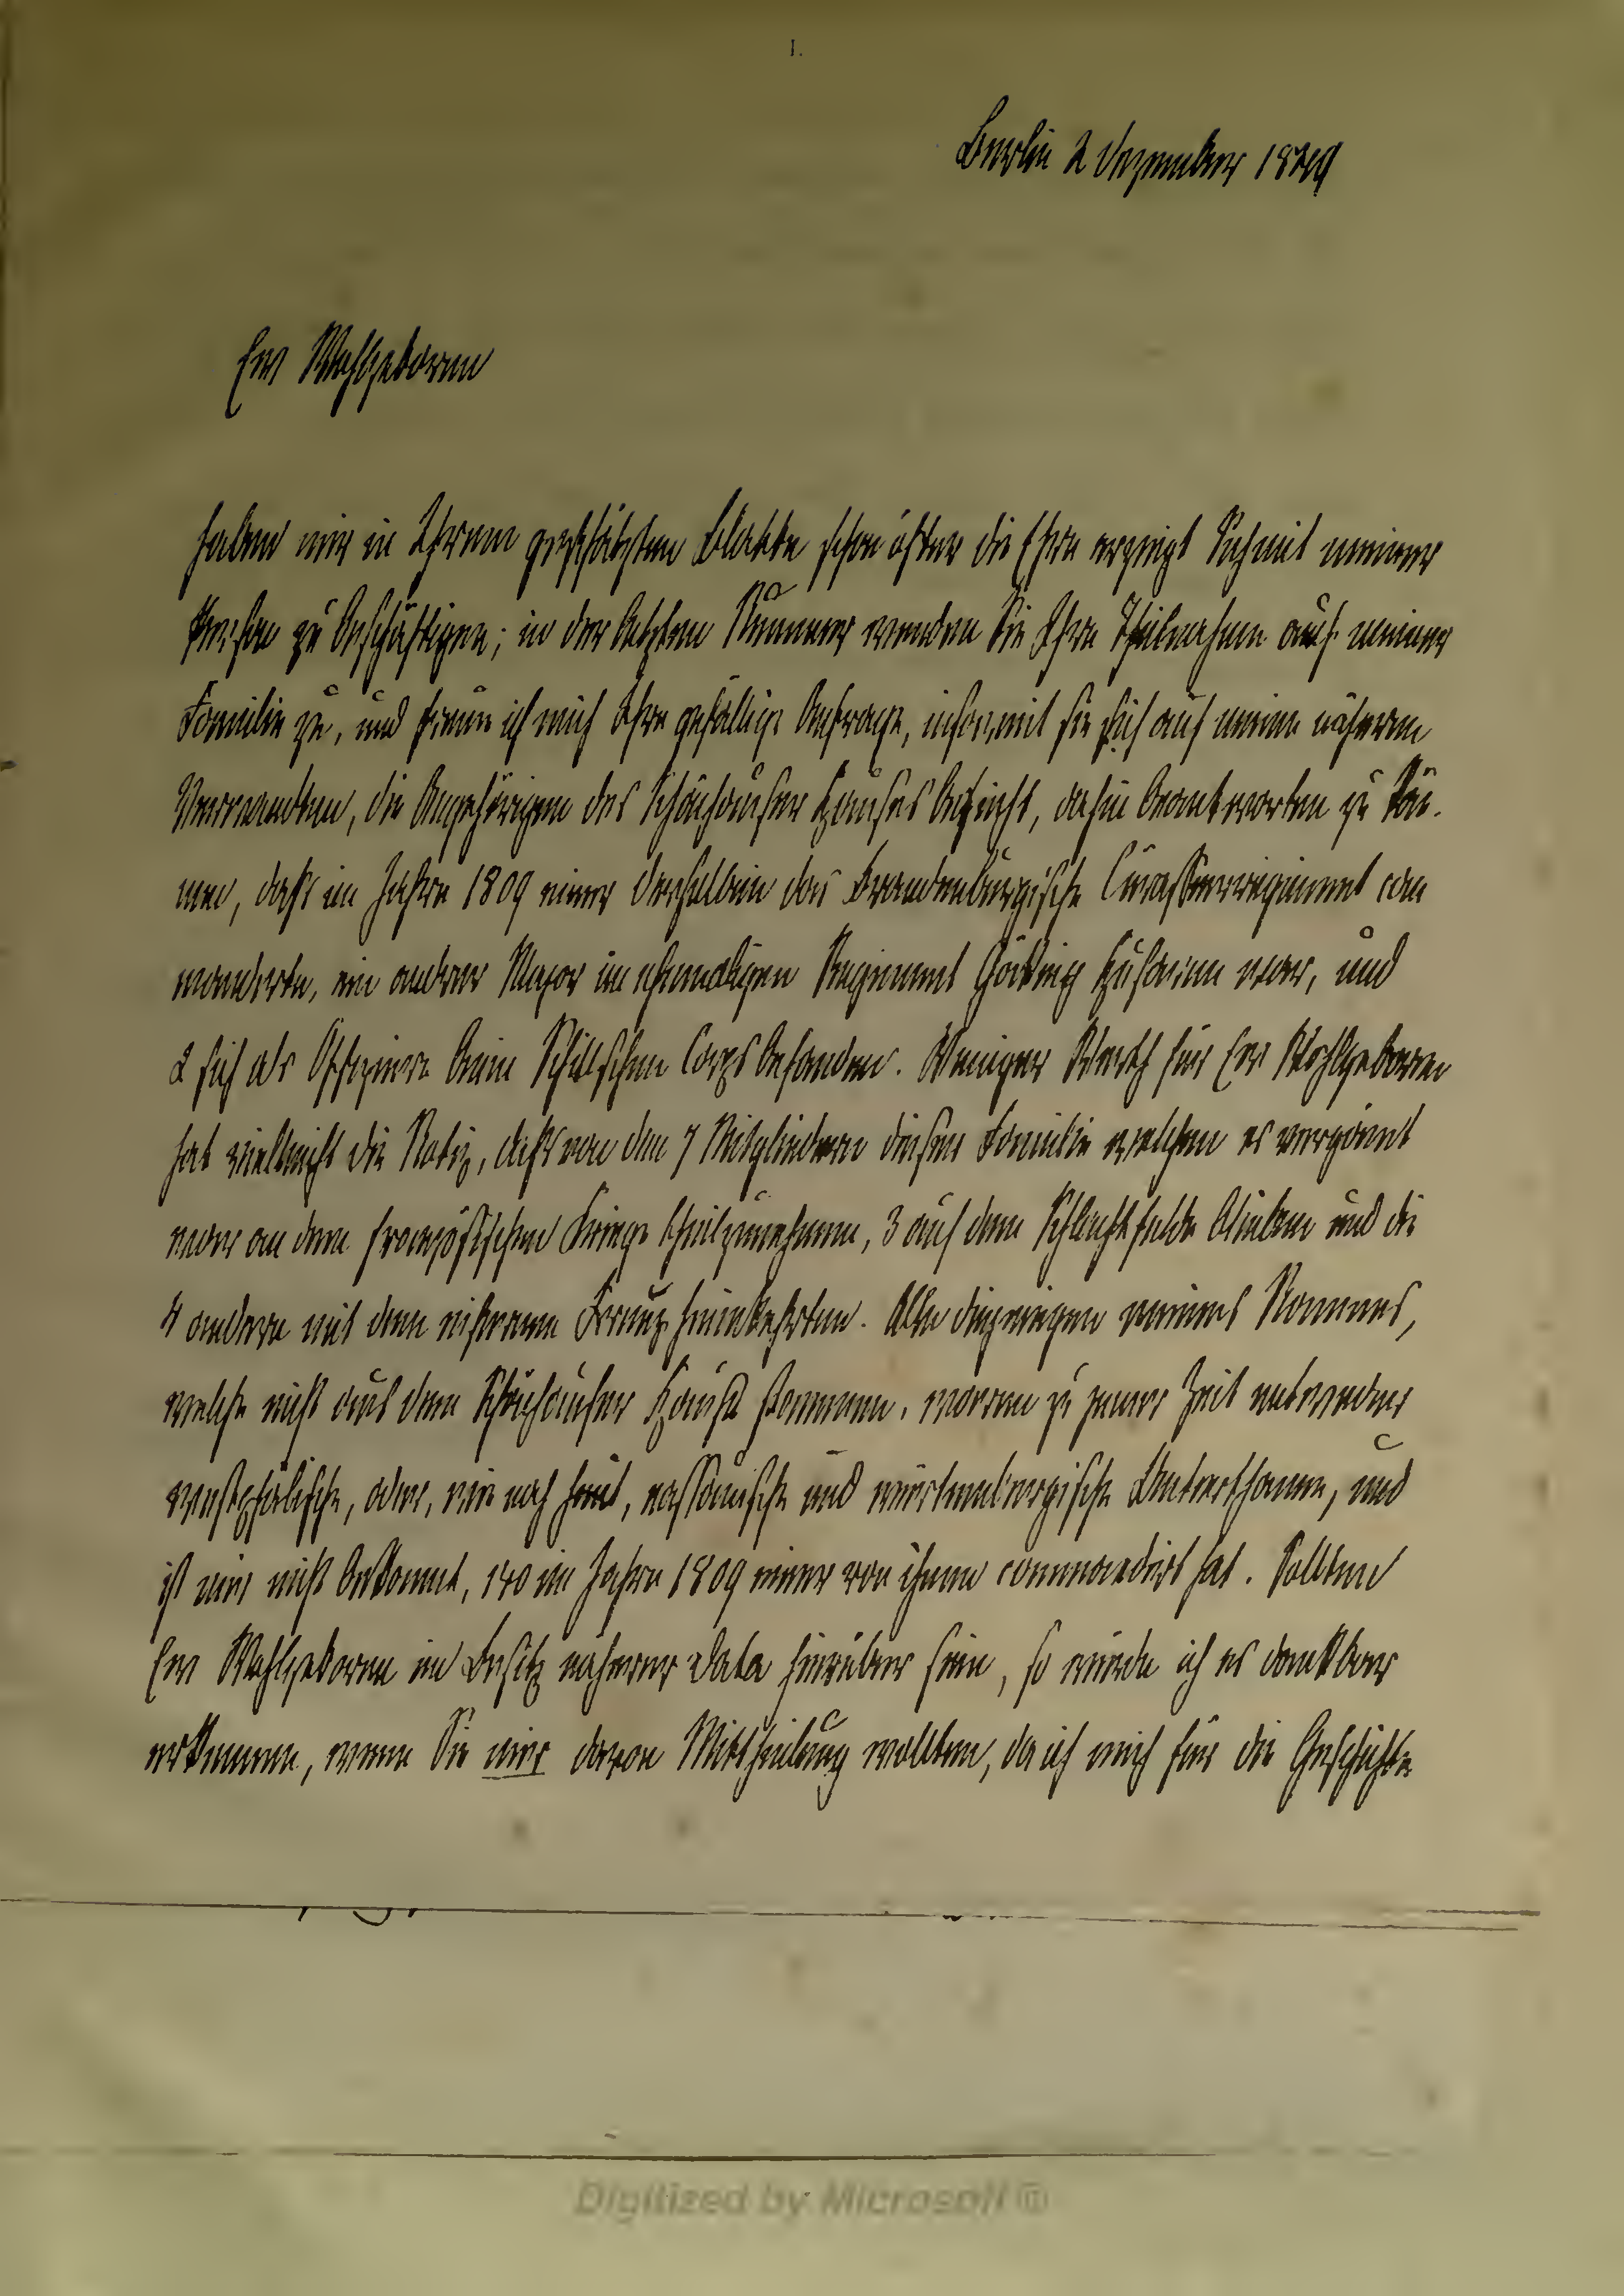 I.
Berlin 2 Dezember 1849
Ew Wohlgeboren
haben mir in Ihrem geschätzten Blatte schon öfter die Ehre erzeigt Sich mit meiner
Person zu beschäftigen; in der letzten Nummer wenden Sie Ihre Theilnahme auch meiner
Familie zu, und freue ich mich Ihre gefällige Anfrage, insoweit sie sich auf meine näheren
Verwandten, die Angehörigen des Schönhauser Hauses bezieht, dahin beantworten zu kön-
nen, daß im Jahre 1809 einer derselben das Brandenburgische Cürassierregiment com
mandirte, ein andrer Major im ehemaligen Regiment Göcking Husaren war, und
2 sich als Offiziere beim Schillschen Corps befanden. Weniger Werth für Ew Wohlgeboren
hat vielleicht die Notiz, daß von den 7 Mitgliedern dieser Familie welchen es vergönnt
war an dem französischen Kriege theilzunehmen, 3 auf dem Schlachtfelde blieben und die
4 andern mit dem eisernen Kreuz heimkehrten. Alle diejenigen meines Namens,
welche nicht aus dem Schönhauser Hause stammen, waren zu jener Zeit entweder
westphälische, oder, wie noch heut, nassauische und würtembergische Unterthanen, und
ist mir nicht bekannt, wo im Jahre 1809 einer von ihnen commandirt hat. Sollten
Ew Wohlgeboren im Besitz näherer Data hierüber sein, so würde ich es dankbar
erkennen, wenn Sie mir davon Mittheilung wollten, da ich mich für die Geschichte
Digitized by Microsoft ®